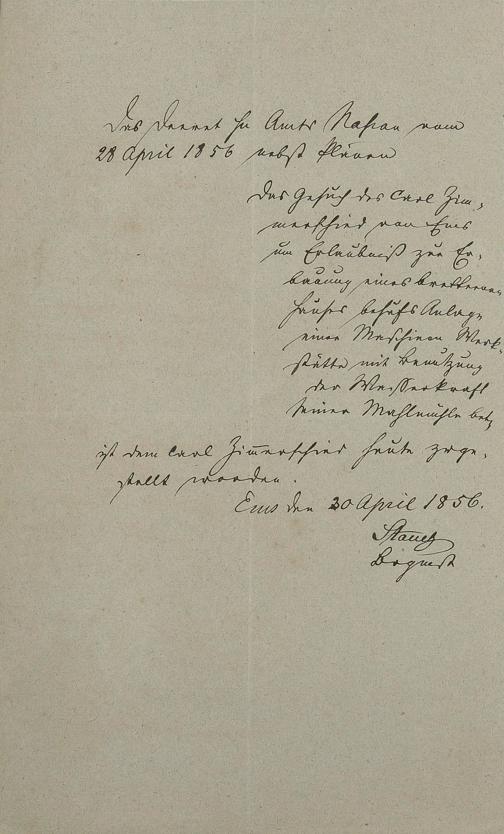 Das Decret H. Amts Nassau vom
28 April 1856 nebst Plänen
Das Gesuch des Carl Zim-
merschied von Ems
um Erlaubniß zur Er-
bauung eines bretternen
Hauses behufs Anlage
einer Maschinen Werk-
stätte mit Benutzung
der Wasserkraft
seiner Mahlmühle betr.
ist dem Carl Zimmerschied heute zuge-
stellt worden.
Ems den 30 April 1856.
Brgmstr